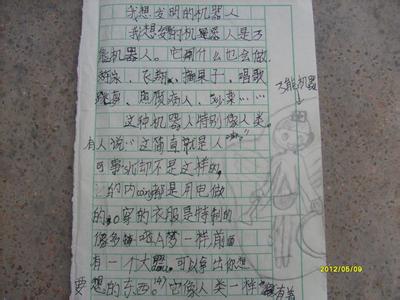 我想发明的机器人
我想发明的机器人是万
能机器人。它什么也会做
衣翔、摘果子、唱歌
、照顾病人、炒菜……
这种机器人特别像人类。
有人说:“这简直就是人”
可事实却不是这样的,
它的内cang都是用电做
的。穿的衣服是特制的
像多啦A梦一样,前面
有一个大器,可以拿出你想
要想的东西。它像人类一样
万能机器
2012/05/09